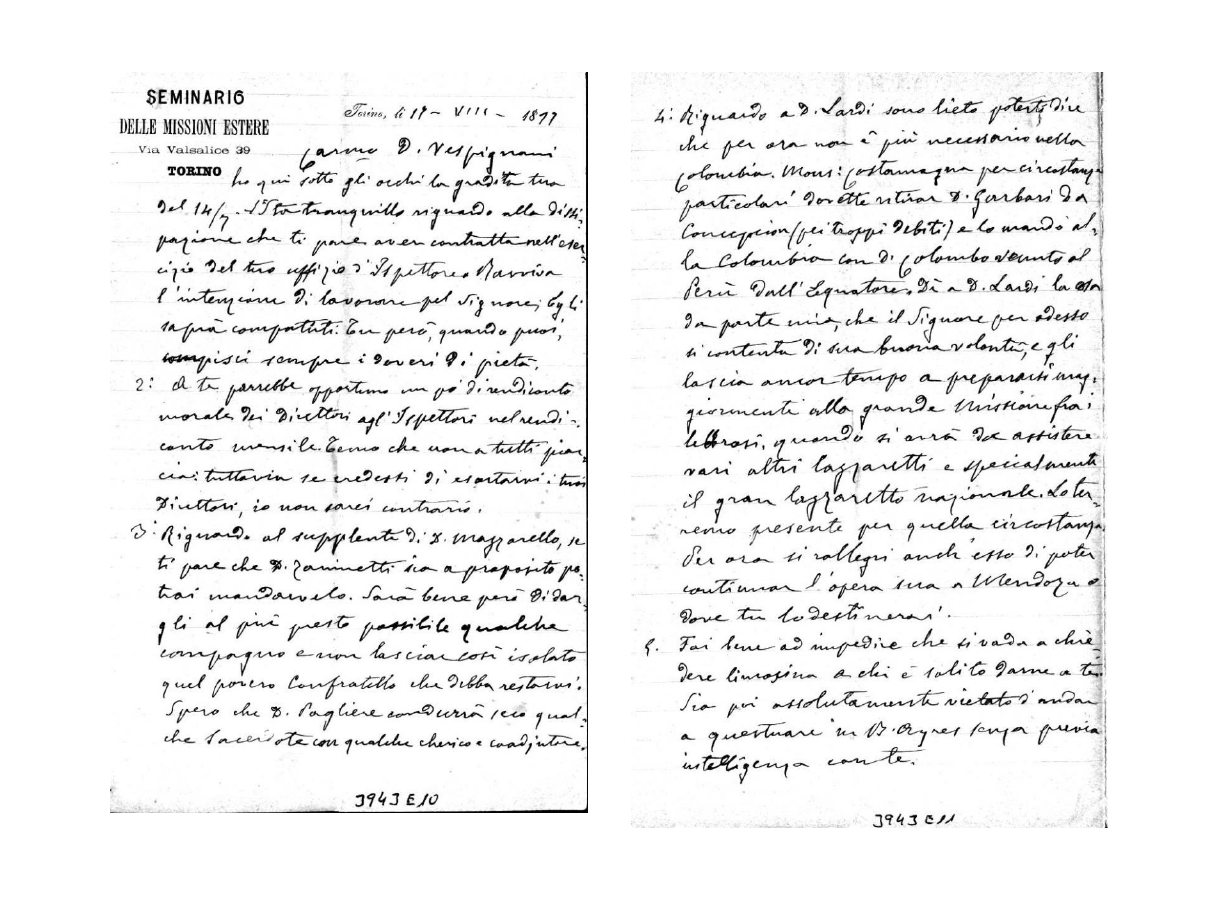 SEMINARIO
DELLE MISSIONI ESTERE
Via Valsalice 39
TORINO
Torino, li 17 - VIII - 1897
Carmo D. Vespignani
ho qui sotto gli occhi la gradita tua
del 14/7. Sta tranquillo riguardo alla dissi-
pazione che ti pare aver contratta nell'eser-
cizio del tuo uffizio d'Ispettore. Ravviva
l'intenzione di lavorare pel Signore; Egli
saprà compatirti. Tu però, quando puoi,
compisci sempre i doveri di pietà.
2: A te parrebbe opportuno un po' di rendiconto
morale dei Direttori agl'Ispettori nel rendi-
conto mensile. Temo che non a tutti piac-
cia: tuttavia se credessi di esortarvi i tuoi
Direttori, io non sarei contrario.
3: Riguardo al supplente di D. Mazzarello, se
ti pare che D. Zaninetti sia a proposito po-
trai mandarvelo. Sarà bene però di dar-
gli al più presto possibile qualche
compagno e non lasciar così isolato
quel povero Confratello che debba restarvi.
Spero che D. Pagliere condurrà seco qual-
che Sacerdote con qualche cherico e coadjutore.
3943 E 10
4: Riguardo a D. Lardi sono lieto poterti dire
che per ora non è più necessario nella
Colombia. Mons: Costamagna per circostanze
particolari dovette ritirar D. Garbari da
Concepcion (pei troppi debiti) e lo mandò al-
la Colombia con D. Colombo venuto al
Perù dall'Equatore. Dì a D. Lardi la cosa
da parte mia, che il Signore per adesso
si contenta di sua buona volontà, e gli
lascia ancor tempo a prepararsi mag-
giormente alla grande Missione fra i
lebbrosi, quando si avrà da assistere
vari altri lazzaretti e specialmente
il gran lazzaretto nazionale. Lo ter-
remo presente per quella circostanza
Per ora si rallegri anch'esso di poter
continuar l'opera sua a Mendoza o
dove tu lo destinerai.
5. Fai bene ad impedire che si vada a chie-
dere limosina a chi è solito darne a te.
Sia poi assolutamente vietato d'andar
a questuare in B. Ayres senza previa
intelligenza con te.
3943 E 11